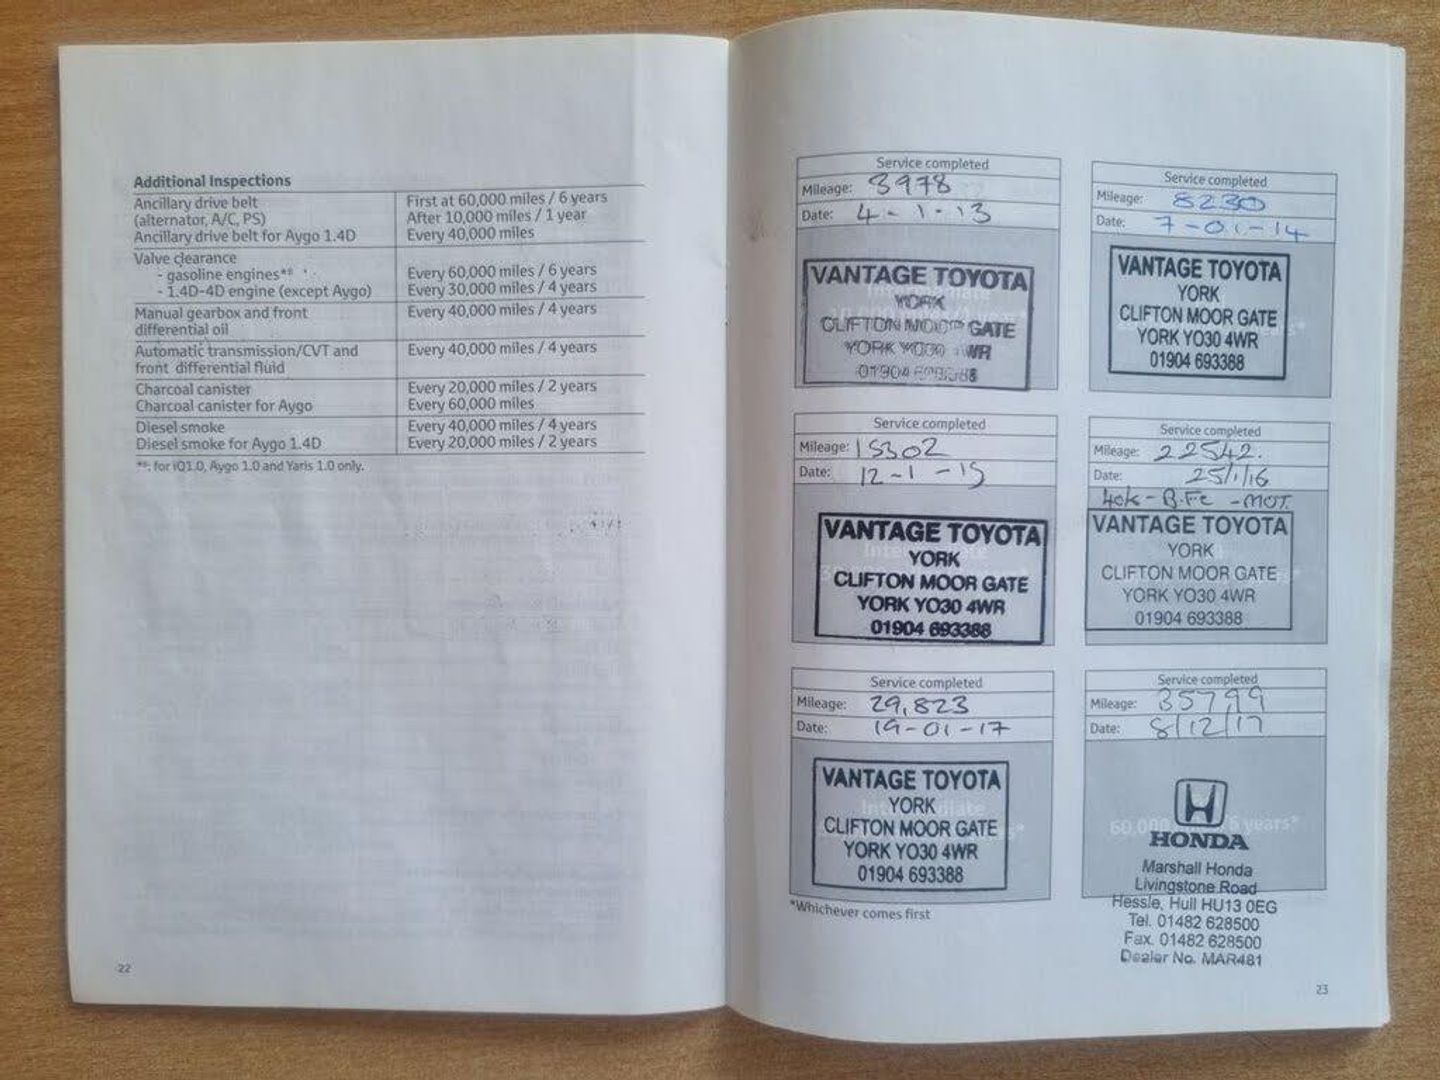 Additional Inspections
Ancillary drive belt First at 60,000 miles / 6 years
(alternator, A/C, PS) After 10,000 miles / 1 year
Ancillary drive belt for Aygo 1.4D Every 40,000 miles
Valve clearance
- gasoline engines** Every 60,000 miles / 6 years
- 1.4D-4D engine (except Aygo) Every 30,000 miles / 4 years
Manual gearbox and front Every 40,000 miles / 4 years
differential oil
Automatic transmission/CVT and Every 40,000 miles / 4 years
front differential fluid
Charcoal canister Every 20,000 miles / 2 years
Charcoal canister for Aygo Every 60,000 miles
Diesel smoke Every 40,000 miles / 4 years
Diesel smoke for Aygo 1.4D Every 20,000 miles / 2 years
**: for iQ1.0, Aygo 1.0 and Yaris 1.0 only.
22
Service completed
Mileage: 3978
Date: 4-1-13
VANTAGE TOYOTA
YORK
CLIFTON MOOR GATE
YORK YO30 4WR
01904 693388
Service completed
Mileage: 8230
Date: 7-01-14
VANTAGE TOYOTA
YORK
CLIFTON MOOR GATE
YORK YO30 4WR
01904 693388
Service completed
Mileage: 15302
Date: 12-1-15
Intermediate
VANTAGE TOYOTA
YORK
CLIFTON MOOR GATE
YORK YO30 4WR
01904 693388
Service completed
Mileage: 22542.
Date: 25/1/16
40k - B.Fe - MOT.
VANTAGE TOYOTA
YORK
CLIFTON MOOR GATE
YORK YO30 4WR
01904 693388
Service completed
Mileage: 29,823
Date: 19-01-17
VANTAGE TOYOTA
Intermediate
YORK
CLIFTON MOOR GATE
YORK YO30 4WR
01904 693388
Service completed
Mileage: 35799
Date: 8/12/17
60,000 6 years*
HONDA
Marshall Honda
Livingstone Road
Hessle, Hull HU13 0EG
Tel. 01482 628500
Fax. 01482 628500
Dealer No. MAR481
*Whichever comes first
23